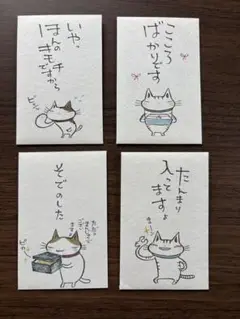 いや、
ほんの
キモチ
ですから
こころ
ばかりです
そでのした
たんまり
入って
ますよ